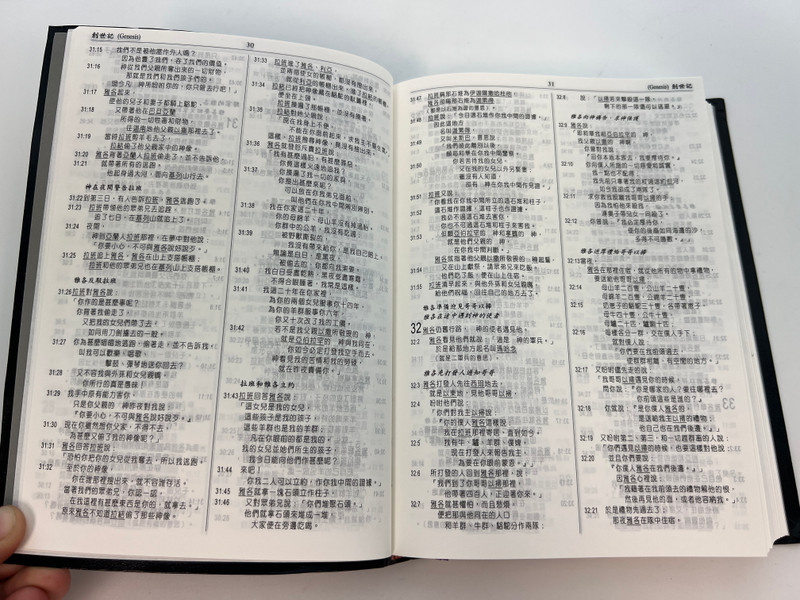 創世記 (Genesis)
30
31:15 我們不是被他當作外人嗎？
因為他賣了我們，吞了我們的價值。
31:16 神從我們父親所奪出來的一切財物，
那就是我們和我們孩子們的。
現今凡 神所吩咐你的，你只管去行吧！」
31:17 雅各起來，
使他的兒子和妻子都騎上駱駝，
31:18 又帶著他在巴旦亞蘭
所得的一切牲畜和財物，
往迦南地他父親以撒那裡去了。
31:19 當時拉班剪羊毛去了，
拉結偷了他父親家中的神像。
31:20 雅各背著亞蘭人拉班偷走了，並不告訴他，
31:21 就帶著所有的逃跑。
他起身過大河，面向基列山行去。
神在夜間警告拉班
31:22 到第三日，有人告訴拉班，雅各逃跑了。
31:23 拉班帶領他的眾弟兄去追趕，
追了七日，在基列山就追上了。
31:24 夜間，
神到亞蘭人拉班那裡，在夢中對他說：
「你要小心，不可與雅各說好說歹。」
31:25 拉班追上雅各。雅各在山上支搭帳棚；
拉班和他的眾弟兄也在基列山上支搭帳棚。
雅各反駁拉班
31:26 拉班對雅各說：
「你做的是甚麼事呢？
你背著我偷走了，
又把我的女兒們帶了去，
如同用刀劍擄去的一般。
31:27 你為甚麼暗暗地逃跑，偷著走，並不告訴我，
叫我可以歡樂、唱歌、
擊鼓、彈琴地送你回去？
31:28 又不容我與外孫和女兒親嘴？
你所行的真是愚昧！
31:29 我手中原有能力害你，
只是你父親的 神昨夜對我說：
『你要小心，不可與雅各說好說歹。』
31:30 現在你雖然想你父家，不得不去，
為甚麼又偷了我的神像呢？」
31:31 雅各回答拉班說：
「恐怕你把你的女兒從我奪去，所以我逃跑。
31:32 至於你的神像，
你在誰那裡搜出來，就不容誰存活。
當著我們的眾弟兄，你認一認，
在我這裡有甚麼東西是你的，就拿去。」
原來雅各不知道拉結偷了那些神像。
31:33 拉班進了雅各、利亞，
並兩個使女的帳棚，都沒有搜出來，
就從利亞的帳棚出來，進了拉結的帳棚。
31:34 拉結已經把神像藏在駱駝的馱簍裡，
便坐在上頭。
拉班摸遍了那帳棚，並沒有摸著。
31:35 拉結對她父親說：
「現在我身上不便，
不能在你面前起來，求我主不要生氣。」
這樣，拉班搜尋神像，竟沒有搜出來。
31:36 雅各就發怒斥責拉班說：
「我有甚麼過犯，有甚麼罪惡，
你竟這樣火速地追我？
31:37 你摸遍了我一切的家具，
你搜出甚麼來呢？
可以放在你我弟兄面前，
叫他們在你我中間辨別辨別。
31:38 我在你家這二十年，
你的母綿羊、母山羊沒有掉過胎。
你群中的公羊，我沒有吃過；
31:39 被野獸撕裂的，
我沒有帶來給你，是我自己賠上。
無論是白日，是黑夜，
被偷去的，你都向我索要。
31:40 我白日受盡乾熱，黑夜受盡寒霜，
不得合眼睡著，我常是這樣。
31:41 我這二十年在你家裡，
為你的兩個女兒服事你十四年，
為你的羊群服事你六年，
你又十次改了我的工價。
31:42 若不是我父親以撒所敬畏的 神，
就是亞伯拉罕的 神與我同在，
你如今必定打發我空手而去。
神看見我的苦情和我的勞碌，
就在昨夜責備你。」
拉班和雅各立約
31:43 拉班回答雅各說：
「這女兒是我的女兒，
這些孩子是我的孩子，
這些羊群也是我的羊群；
凡在你眼前的都是我的。
我的女兒並她們所生的孩子，
我今日能向他們作甚麼呢？
31:44 來吧！
你我二人可以立約，作你我中間的證據。」
31:45 雅各就拿一塊石頭立作柱子，
31:46 又對眾弟兄說：「你們堆聚石頭。」
他們就拿石頭來堆成一堆，
大家便在旁邊吃喝。
31
(Genesis) 創世記
31:47 拉班稱那石堆為伊迦爾撒哈杜他，
雅各卻稱那石堆為迦累得
31:48 拉班說：「今日這石堆作你我中間的證據。」
因此這地方
名叫迦累得，
31:49 又叫米斯巴，意思說：
「我們彼此離別以後，
願耶和華在你我中間鑒察。
31:50 你若苦待我的女兒，
又在我的女兒以外另娶妻，
雖沒有人知道，
卻有 神在你我中間作見證。」
31:51 拉班又說：
「你看我在你我中間所立的這石堆和柱子，
31:52 這石堆作證據，這柱子也作證據。
我必不過這石堆去害你，
你也不可過這石堆和柱子來害我。
31:53 但願亞伯拉罕的 神和拿鶴的 神，
就是他們父親的 神，
在你我中間判斷。」
雅各就指著他父親以撒所敬畏的 神起誓，
31:54 又在山上獻祭，請眾弟兄來吃飯。
他們吃了飯，便在山上住宿。
31:55 拉班清早起來，與他外孫和女兒親嘴，
給他們祝福，回往自己的地方去了。
雅各準備迎見哥哥以掃
雅各在途中遇到神的使者
32 雅各仍舊行路， 神的使者遇見他。
32:2 雅各看見他們就說：「這是 神的軍兵」，
於是給那地方起名叫瑪哈念
(就是二軍兵的意思)。
雅各先打發人通知哥哥
32:3 雅各打發人先往西珥地去，
就是以東地，見他哥哥以掃，
32:4 吩咐他們說：
「你們對我主以掃說：
『你的僕人雅各這樣說：
我在拉班那裡寄居，直到如今。
32:5 我有牛、驢、羊群、僕婢，
現在打發人來報告我主，
為要在你眼前蒙恩。』」
32:6 所打發的人回到雅各那裡，說：
「我們到了你哥哥以掃那裡，
他帶著四百人，正迎著你來。」
32:7 雅各就甚懼怕，而且愁煩，
便把那與他同在的人口
和羊群、牛群、駱駝分作兩隊，
32:8 說：「以掃若來擊殺這一隊，
剩下的那一隊還可以逃避。」
雅各向神禱告，求神保護
32:9 雅各說：
「耶和華我祖亞伯拉罕的 神，
我父親以撒的 神啊，
你曾對我說：
『回你本地本族去，我要厚待你。』
32:10 你向僕人所施的一切慈愛和誠實，
我一點也不配得；
我先前只拿著我的杖過這約但河，
如今我卻成了兩隊了。
32:11 求你救我脫離我哥哥以掃的手；
因為我怕他來殺我，
連妻子帶兒女一同殺了。
32:12 你曾說：『我必定厚待你，
使你的後裔如同海邊的沙，
多得不可勝數。』」
雅各送厚禮給哥哥以掃
32:13 當夜，
雅各在那裡住宿，就從他所有的物中拿禮物，
要送給他哥哥以掃：
32:14 母山羊二百隻，公山羊二十隻，
母綿羊二百隻，公綿羊二十隻，
32:15 奶崽子的駱駝三十隻，各帶著崽子，
母牛四十隻，公牛十隻，
母驢二十匹，驢駒十匹；
32:16 每樣各分一群，交在僕人手下，
就對僕人說：
「你們要在我前頭過去，
使群群相離，有空閒的地方。」
32:17 又吩咐儘先走的說：
「我哥哥以掃遇見你的時候，
問你說：『你是哪家的人？要往哪裡去？
你前頭這些是誰的？』
32:18 你就說：『是你僕人雅各的，
是送給我主以掃的禮物；
他自己也在我們後邊。』」
32:19 又吩咐第二、第三，和一切趕群畜的人說：
「你們遇見以掃的時候，也要這樣對他說；
32:20 並且你們要說：
『你僕人雅各在我們後邊。』」
因雅各心裡說：
「我藉著在我前頭去的禮物解他的恨，
然後再見他的面，或者他容納我。」
32:21 於是禮物先過去了；
那夜雅各在隊中住宿。